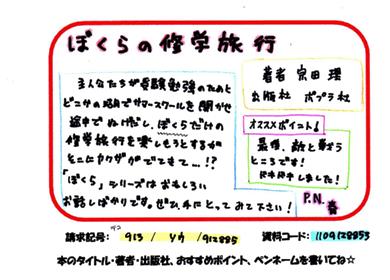 ぼくらの修学旅行
著者 宗田 理
出版社 ポプラ社
主人公たちが受験勉強のためと
どこかの場所でサマースクールを開かせ
途中でぬけだし、ぼくらだけの
修学旅行を楽しもうとするが
そこにヤクザがでてきて…!?
「ぼくら」シリーズはおもしろい
お話しばかりです。ぜひ、手にとってみて下さい!
オススメポイント!
最後、敵と戦う
ところです!
ドキドキしました!
P.N. 春
請求記号: 913 / ソウ / 912885
資料コード: 1109128853
本のタイトル・著者・出版社、おすすめポイント、ペンネームを書いてね☆